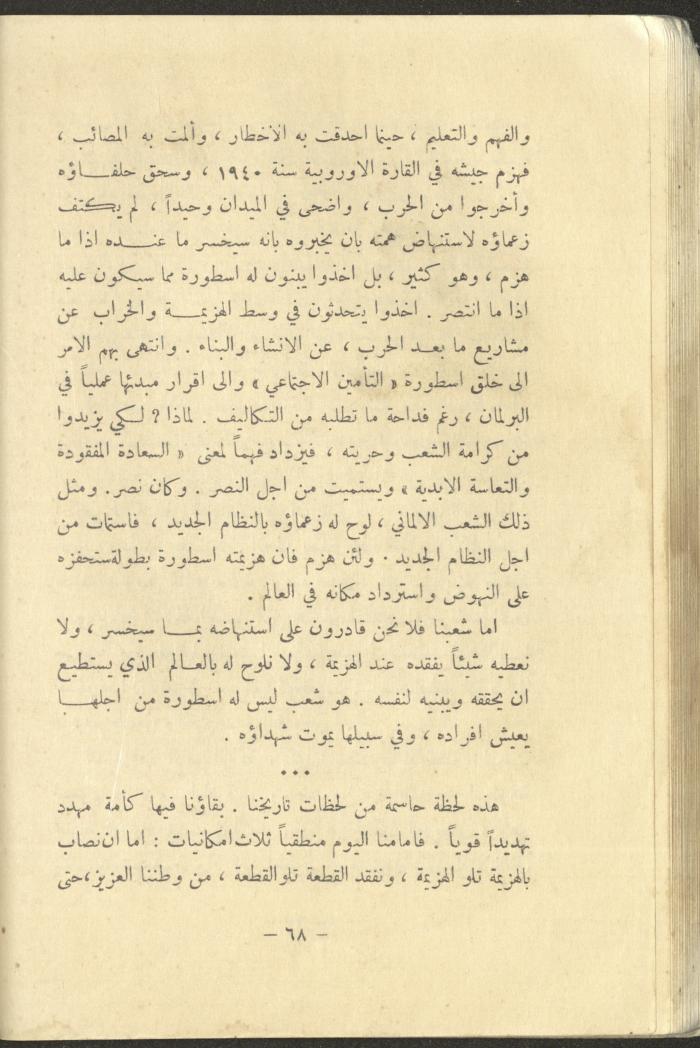 والفهم والتعليم ، حينما احدقت به الاخطار ، وألمت به المصائب ،
فهزم جيشه في القارة الاوروبية سنة ١٩٤٠ ، وسحق حلفاؤه
وأخرجوا من الحرب ، واضحى في الميدان وحيداً ، لم يكتف
زعماؤه لاستنهاض همته بان يخبروه بانه سيخسر ما عنده اذا ما
هزم ، وهو كثير ، بل اخذوا يبنون له اسطورة مما سيكون عليه
اذا ما انتصر . اخذوا يتحدثون في وسط الهزيمة والخراب عن
مشاريع ما بعد الحرب ، عن الانشاء والبناء . وانتهى بهم الامر
الى خلق اسطورة « التأمين الاجتماعي » والى اقرار مبدئها عملياً في
البرلمان ، رغم فداحة ما تطلبه من التكاليف . لماذا ؟ لكي يزيدوا
من كرامة الشعب وحريته ، فيزداد فهماً لمعنى « السعادة المفقودة
والتعاسة الابدية » ويستميت من اجل النصر . وكان نصر . ومثل
ذلك الشعب الالماني ، لوح له زعماؤه بالنظام الجديد ، فاستمات من
اجل النظام الجديد . ولئن هزم فان هزيمته اسطورة بطولة ستحفزه
على النهوض واسترداد مكانه في العالم .
اما شعبنا فلا نحن قادرون على استنهاضه بما سيخسر ، ولا
نعطيه شيئاً يفقده عند الهزيمة ، ولا نلوح له بالعالم الذي يستطيع
ان يحققه ويبنيه لنفسه . هو شعب ليس له اسطورة من اجلها
يعيش افراده ، وفي سبيلها يموت شهداؤه .
...
هذه لحظة حاسمة من لحظات تاريخنا . بقاؤنا فيها كأمة مهدد
تهديداً قوياً . فامامنا اليوم منطقياً ثلاث امكانيات : اما ان نصاب
بالهزيمة تلو الهزيمة ، ونفقد القطعة تلو القطعة ، من وطننا العزيز ، حتى
- ٦٨ -